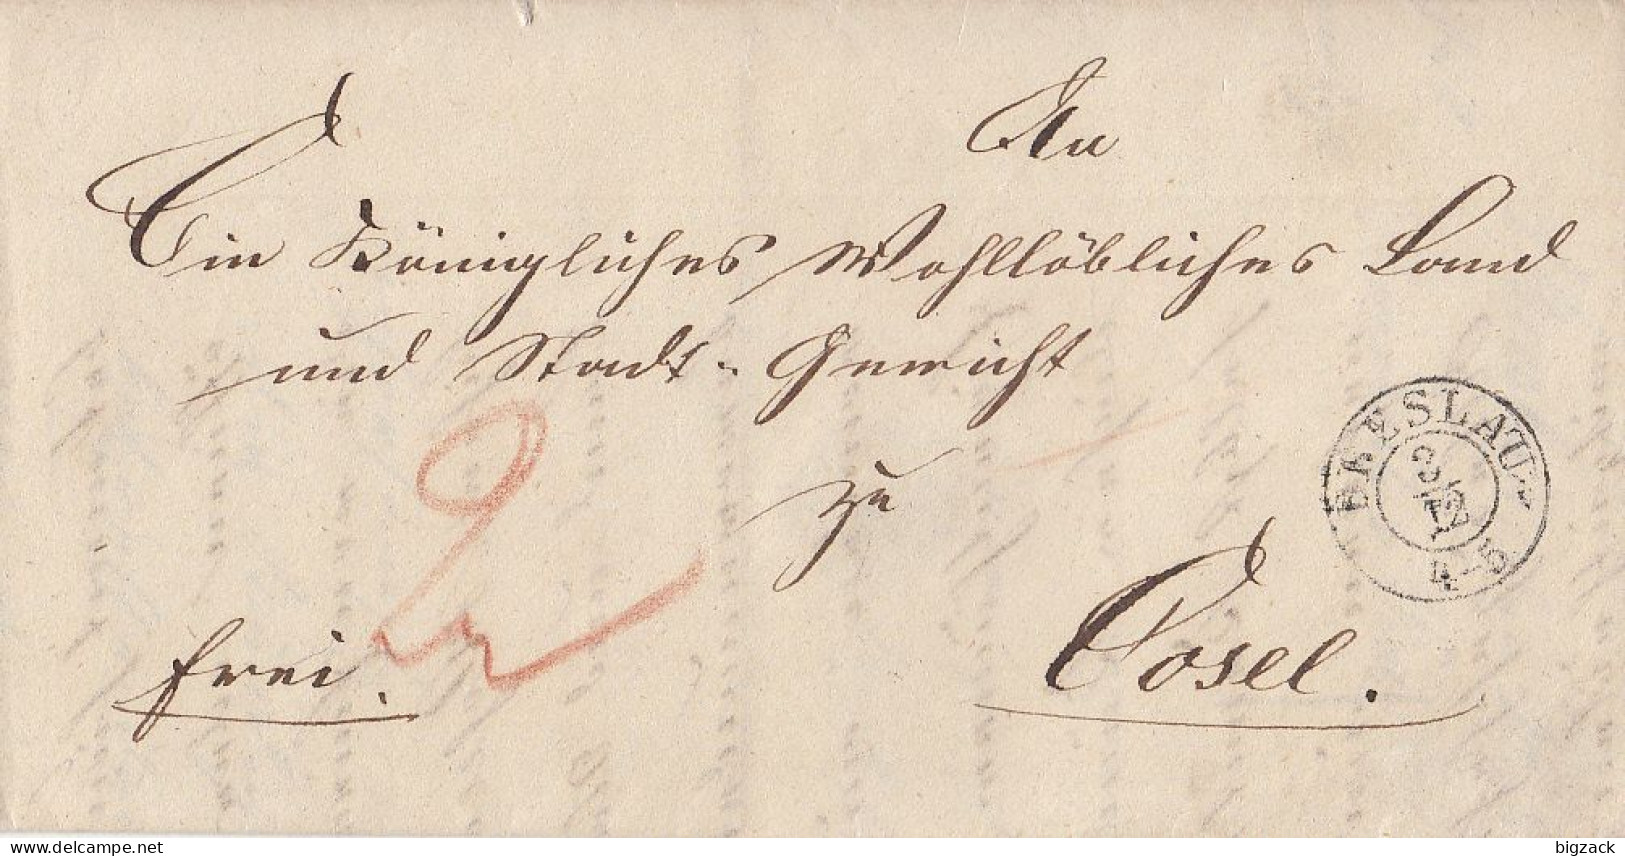 An
Ein Königliches Wohllöbliches Land
und Stadt-Gericht
zu
Cosel.
frei.
2
BRESLAU
3/12
4-5
delcampe.net
bigzack